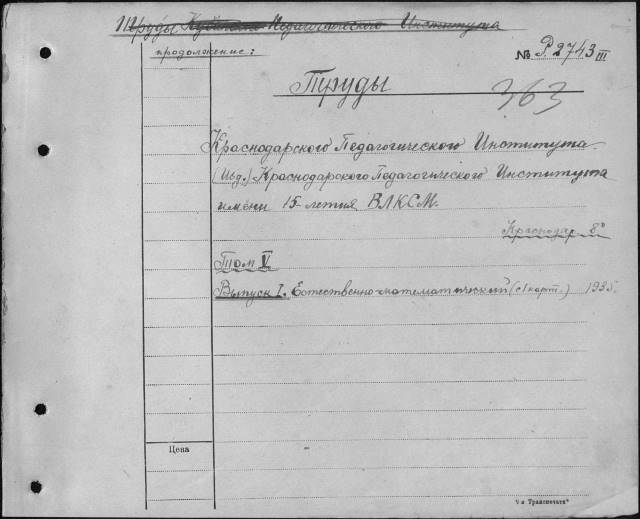 Труды Кубанского Педагогического Института
продолжение:
№ P. 2743 III
Труды
363
Краснодарского Педагогического Института.
(Изд.) Краснодарского Педагогического Института
имени 15-летия ВЛКСМ.
Краснодар 8°
Том V
Выпуск I. Естественно-математический (с 1 карт.) 1935.
Цена
"Транспечать"